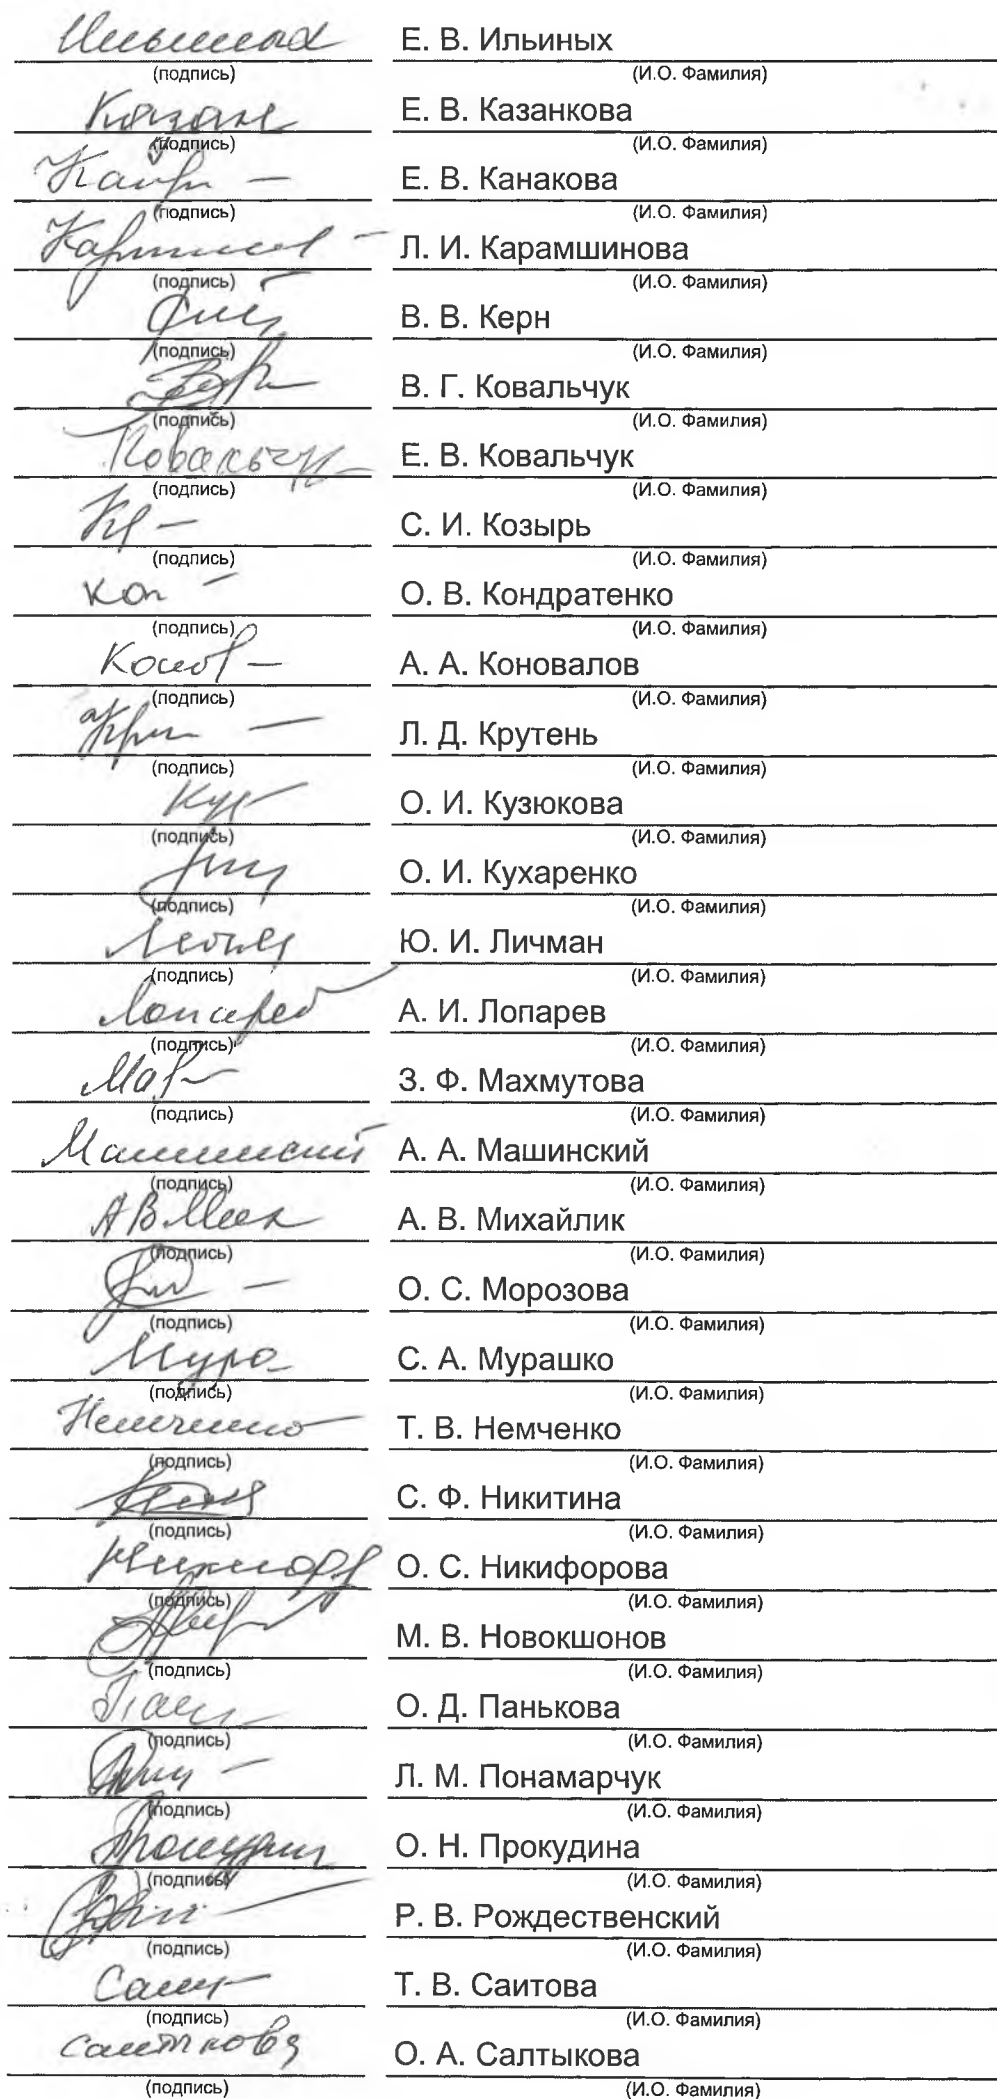 Ильиных Е. В. Ильиных
(подпись) (И.О. Фамилия)
Казан Е. В. Казанкова
(подпись) (И.О. Фамилия)
Е. В. Канакова
(подпись) (И.О. Фамилия)
Л. И. Карамшинова
(подпись) (И.О. Фамилия)
В. В. Керн
(подпись) (И.О. Фамилия)
В. Г. Ковальчук
(подпись) (И.О. Фамилия)
Ковальчук Е. В. Ковальчук
(подпись) (И.О. Фамилия)
С. И. Козырь
(подпись) (И.О. Фамилия)
О. В. Кондратенко
(подпись) (И.О. Фамилия)
А. А. Коновалов
(подпись) (И.О. Фамилия)
Л. Д. Крутень
(подпись) (И.О. Фамилия)
О. И. Кузюкова
(подпись) (И.О. Фамилия)
О. И. Кухаренко
(подпись) (И.О. Фамилия)
Ю. И. Личман
(подпись) (И.О. Фамилия)
Лопарев А. И. Лопарев
(подпись) (И.О. Фамилия)
З. Ф. Махмутова
(подпись) (И.О. Фамилия)
Машинский А. А. Машинский
(подпись) (И.О. Фамилия)
А. В. Михайлик
(подпись) (И.О. Фамилия)
О. С. Морозова
(подпись) (И.О. Фамилия)
С. А. Мурашко
(подпись) (И.О. Фамилия)
Немченко Т. В. Немченко
(подпись) (И.О. Фамилия)
С. Ф. Никитина
(подпись) (И.О. Фамилия)
О. С. Никифорова
(подпись) (И.О. Фамилия)
М. В. Новокшонов
(подпись) (И.О. Фамилия)
О. Д. Панькова
(подпись) (И.О. Фамилия)
Л. М. Понамарчук
(подпись) (И.О. Фамилия)
О. Н. Прокудина
(подпись) (И.О. Фамилия)
Р. В. Рождественский
(подпись) (И.О. Фамилия)
Т. В. Саитова
(подпись) (И.О. Фамилия)
Салтыкова О. А. Салтыкова
(подпись) (И.О. Фамилия)